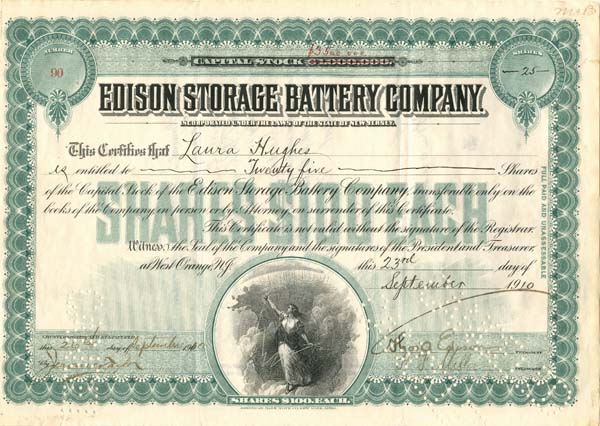 $3500.000.
CAPITAL STOCK $1,000,000.
NUMBER
90
SHARES
25
EDISON STORAGE BATTERY COMPANY.
INCORPORATED UNDER THE LAWS OF THE STATE OF NEW JERSEY.
This Certifies that Laura Hughes
is entitled to Twenty five Shares
of the Capital Stock of the Edison Storage Battery Company, transferable only on the
books of the Company in person or by Attorney, on surrender of this Certificate.
This Certificate is not valid without the signature of the Registrar.
Witness, the Seal of the Company and the signatures of the President and Treasurer.
at West Orange, N.J. this 23rd day of
September 1910
SHARES $100. EACH.
FULL PAID AND UNASSESSABLE
COUNTERSIGNED AND REGISTERED
this day of September 1910
PRESIDENT
TREASURER
SHARES $100. EACH.
AMERICAN BANK NOTE COMPANY, NEW YORK.